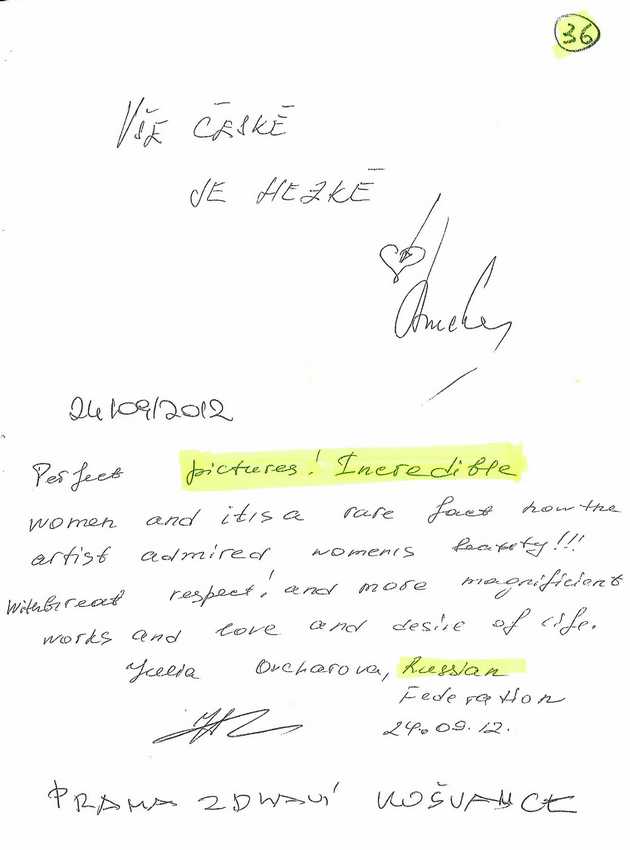 36
VŠE ČESKÉ
JE HEZKÉ
24/09/2012
Perfect pictures! Incredible
women and it is a rare fact how the
artist admired women's beauty!!!
With Great respect! and more magnificient
works and love and desire of life.
Yulia Ovcharova, Russian
Federation
24.09.12.
PRAHA ZDRAVÍ